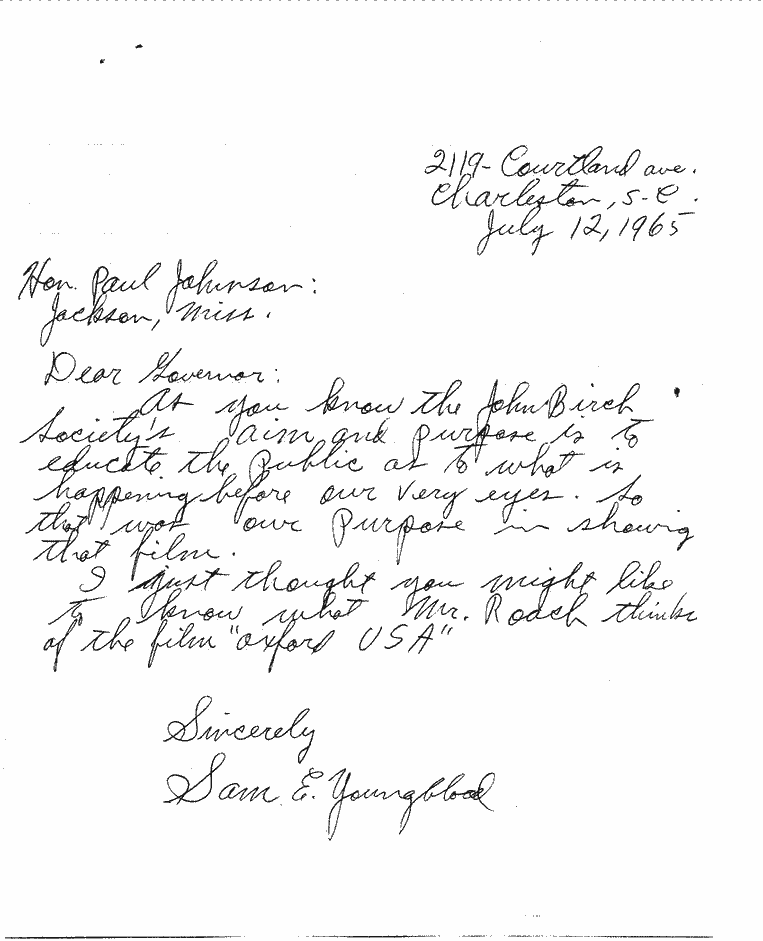 2119- Courtland ave.
Charleston, S-C.
July 12, 1965
Hon. Paul Johnson:
Jackson, Miss.
Dear Governor:
As you know the John Birch
Society's aim and purpose is to
educate the public as to what is
happening before our very eyes. So
that was our purpose in showing
that film.
I just thought you might like
to know what Mr. Roach thinks
of the film "oxford USA"
Sincerely
Sam E. Youngblood